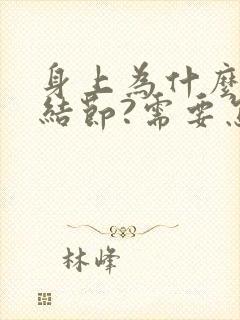 身上為什麼
結節?需要
林峰